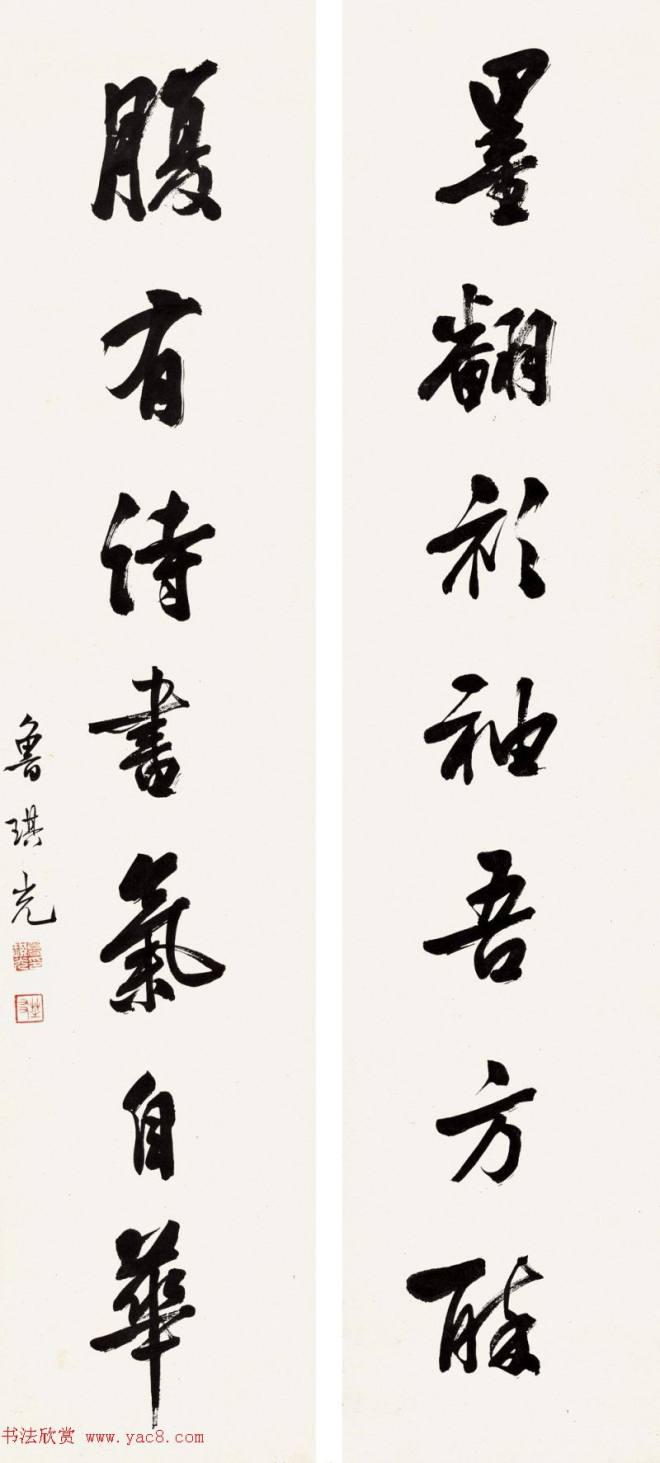 墨翻衫袖吾方醉
腹有詩書氣自華
魯琪光
书法欣赏 www.yac8.com